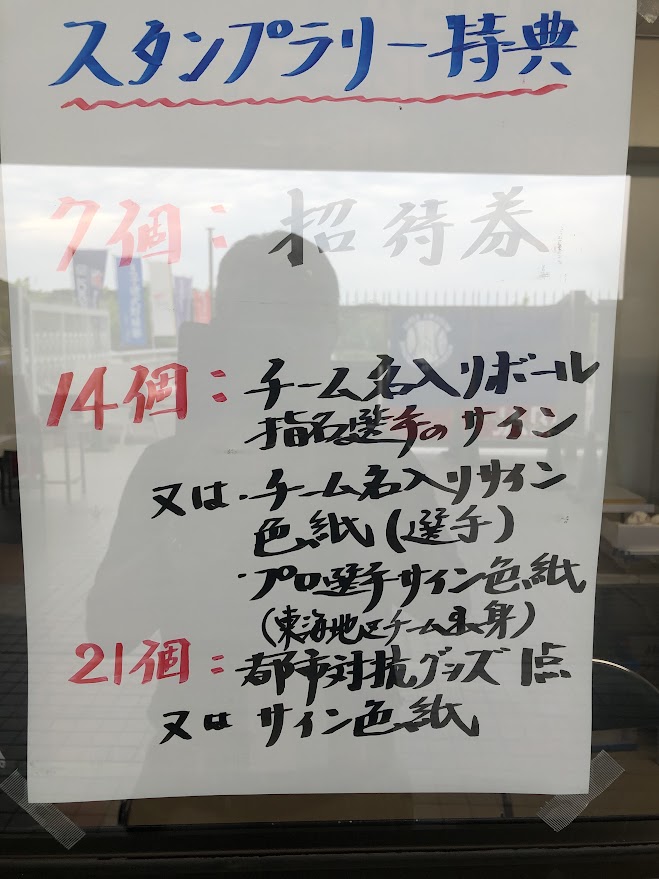 スタンプラリー特典
7個：招待券
14個：チーム名入りボール
指名選手のサイン
又は・チーム名入りサイン
色紙（選手）
・プロ選手サイン色紙
（東海地区チーム出身）
21個：都市対抗グッズ1点
又はサイン色紙